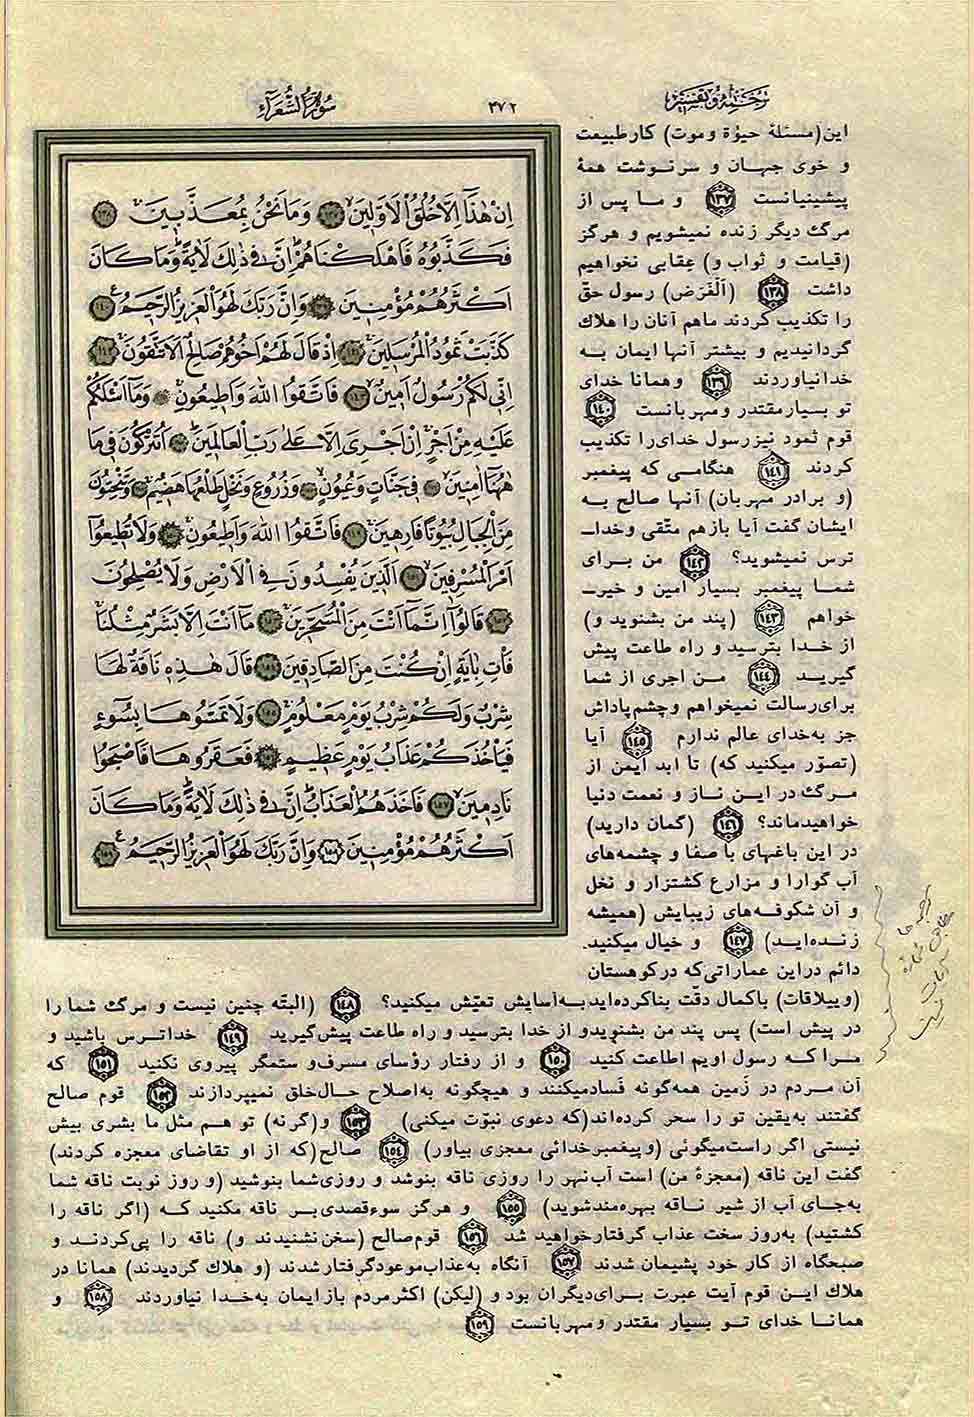 ترجمه و تفسیر
۳۷۲
سورة الشعراء
اِنْ هٰذَٓا اِلَّا خُلُقُ الْاَوَّلِينَ ۝۱۳۷ وَمَا نَحْنُ بِمُعَذَّبِينَ ۝۱۳۸
فَكَذَّبُوهُ فَاَهْلَكْنَاهُمْ اِنَّ فِي ذٰلِكَ لَاٰيَةً وَمَا كَانَ
اَكْثَرُهُمْ مُؤْمِنِينَ ۝۱۳۹ وَاِنَّ رَبَّكَ لَهُوَ الْعَزِيزُ الرَّحِيمُ ۝۱۴۰
كَذَّبَتْ ثَمُودُ الْمُرْسَلِينَ ۝۱۴۱ اِذْ قَالَ لَهُمْ اَخُوهُمْ صَالِحٌ اَلَا تَتَّقُونَ ۝۱۴۲
اِنِّي لَكُمْ رَسُولٌ اَمِينٌ ۝۱۴۳ فَاتَّقُوا اللّٰهَ وَاَطِيعُونِ ۝ وَمَٓا اَسْئَلُكُمْ
عَلَيْهِ مِنْ اَجْرٍ اِنْ اَجْرِيَ اِلَّا عَلٰى رَبِّ الْعَالَمِينَ ۝ اَتُتْرَكُونَ فِي مَا
هٰهُنَٓا اٰمِنِينَ ۝ فِي جَنَّاتٍ وَعُيُونٍ ۝ وَزُرُوعٍ وَنَخْلٍ طَلْعُهَا هَضِيمٌ ۝ وَتَنْحِتُونَ
مِنَ الْجِبَالِ بُيُوتًا فَارِهِينَ ۝۱۴۹ فَاتَّقُوا اللّٰهَ وَاَطِيعُونِ ۝۱۵۰ وَلَا تُطِيعُٓوا
اَمْرَ الْمُسْرِفِينَ ۝۱۵۱ اَلَّذِينَ يُفْسِدُونَ فِي الْاَرْضِ وَلَا يُصْلِحُونَ
۝۱۵۲ قَالُٓوا اِنَّمَٓا اَنْتَ مِنَ الْمُسَحَّرِينَ ۝۱۵۳ مَٓا اَنْتَ اِلَّا بَشَرٌ مِثْلُنَا
فَأْتِ بِاٰيَةٍ اِنْ كُنْتَ مِنَ الصَّادِقِينَ ۝۱۵۴ قَالَ هٰذِهِ نَاقَةٌ لَهَا
شِرْبٌ وَلَكُمْ شِرْبُ يَوْمٍ مَعْلُومٍ ۝۱۵۵ وَلَا تَمَسُّوهَا بِسُٓوءٍ
فَيَأْخُذَكُمْ عَذَابُ يَوْمٍ عَظِيمٍ ۝۱۵۶ فَعَقَرُوهَا فَاَصْبَحُوا
نَادِمِينَ ۝۱۵۷ فَاَخَذَهُمُ الْعَذَابُ اِنَّ فِي ذٰلِكَ لَاٰيَةً وَمَا كَانَ
اَكْثَرُهُمْ مُؤْمِنِينَ ۝۱۵۸ وَاِنَّ رَبَّكَ لَهُوَ الْعَزِيزُ الرَّحِيمُ ۝۱۵۹
این (مسئلهٔ حیوٰة و موت) کار طبیعت
و خوی جهان و سرنوشت همهٔ
پیشینیانست ۱۳۷ و ما پس از
مرگ دیگر زنده نمیشویم و هرگز
(قیامت و ثواب و) عِقابی نخواهیم
داشت ۱۳۸ (اَلْغَرَض) رسول حق
را تکذیب کردند ما هم آنان را هلاک
گردانیدیم و بیشتر آنها ایمان به
خدا نیاوردند ۱۳۹ و همانا خدای
تو بسیار مقتدر و مهربانست ۱۴۰
قوم ثمود نیز رسول خدای را تکذیب
کردند ۱۴۱ هنگامی که پیغمبر
(و برادر مهربان) آنها صالح به
ایشان گفت آیا باز هم متّقی و خدا-
ترس نمیشوید؟ ۱۴۲ من برای
شما پیغمبر بسیار امین و خیر-
خواهم ۱۴۳ (پند من بشنوید و)
از خدا بترسید و راه طاعت پیش
گیرید ۱۴۴ من اجری از شما
برای رسالت نمیخواهم و چشم پاداش
جز به خدای عالم ندارم ۱۴۵ آیا
(تصوّر میکنید که) تا ابد ایمن از
مرگ در این ناز و نعمت دنیا
خواهید ماند؟ ۱۴۶ (گمان دارید)
در این باغهای با صفا و چشمه‌های
آب گوارا و مزارع کشتزار و نخل
و آن شکوفه‌های زیبایش (همیشه
زنده‌اید) ۱۴۷ و خیال میکنید
دائم در این عماراتی که در کوهستان
(و ییلاقات) با کمال دقّت بنا کرده‌اید به آسایش تعیّش میکنید؟ ۱۴۸ (البتّه چنین نیست و مرگ شما را
در پیش است) پس پند من بشنوید و از خدا بترسید و راه طاعت پیش گیرید ۱۴۹ خداترس باشید و
مرا که رسول اویم اطاعت کنید ۱۵۰ و از رفتار رؤسای مسرف و ستمگر پیروی نکنید ۱۵۱ که
آن مردم در زمین همه گونه فساد میکنند و هیچگونه به اصلاح حال خلق نمیپردازند ۱۵۲ قوم صالح
گفتند به یقین تو را سحر کرده‌اند (که دعوی نبوّت میکنی) ۱۵۳ و (گرنه) تو هم مثل ما بشری بیش
نیستی اگر راست میگوئی (و پیغمبر خدائی معجزی بیاور) ۱۵۴ صالح (که از او تقاضای معجزه کردند)
گفت این ناقه (معجزهٔ من) است آب نهر را روزی ناقه بنوشد و روزی شما بنوشید (و روز نوبت ناقه شما
به جای آب از شیر ناقه بهره‌مند شوید) ۱۵۵ و هرگز سوء قصدی بر ناقه مکنید که (اگر ناقه را
کشتید) به روز سخت عذاب گرفتار خواهید شد ۱۵۶ قوم صالح (سخن نشنیدند و) ناقه را پی کردند و
صبحگاه از کار خود پشیمان شدند ۱۵۷ آنگاه به عذاب موعود گرفتار شدند (و هلاک گردیدند) همانا در
هلاک این قوم آیت عبرت برای دیگران بود و (لیکن) اکثر مردم باز ایمان به خدا نیاوردند ۱۵۸ و
همانا خدای تو بسیار مقتدر و مهربانست ۱۵۹
ترجمه ها
مطابق شماره
آیات نیست